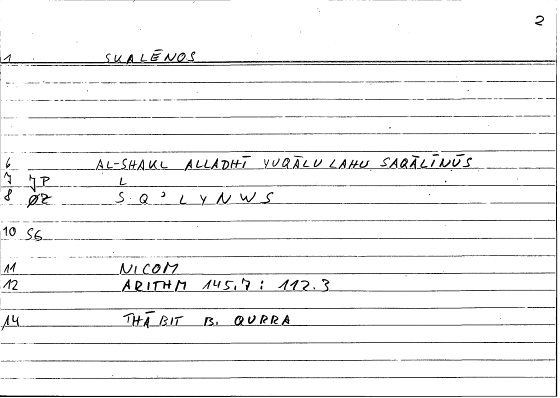 2
1 SKALĒNOS
6 AL-SHAKL ALLADHĪ YUQĀLU LAHU SAQĀLĪNŪS
7 JP L
8 ØZ S Q ʾ L Y N W S
10 S6
11 NICOM
12 ARITHM 145.7 : 112.3
14 THĀBIT B. QURRA